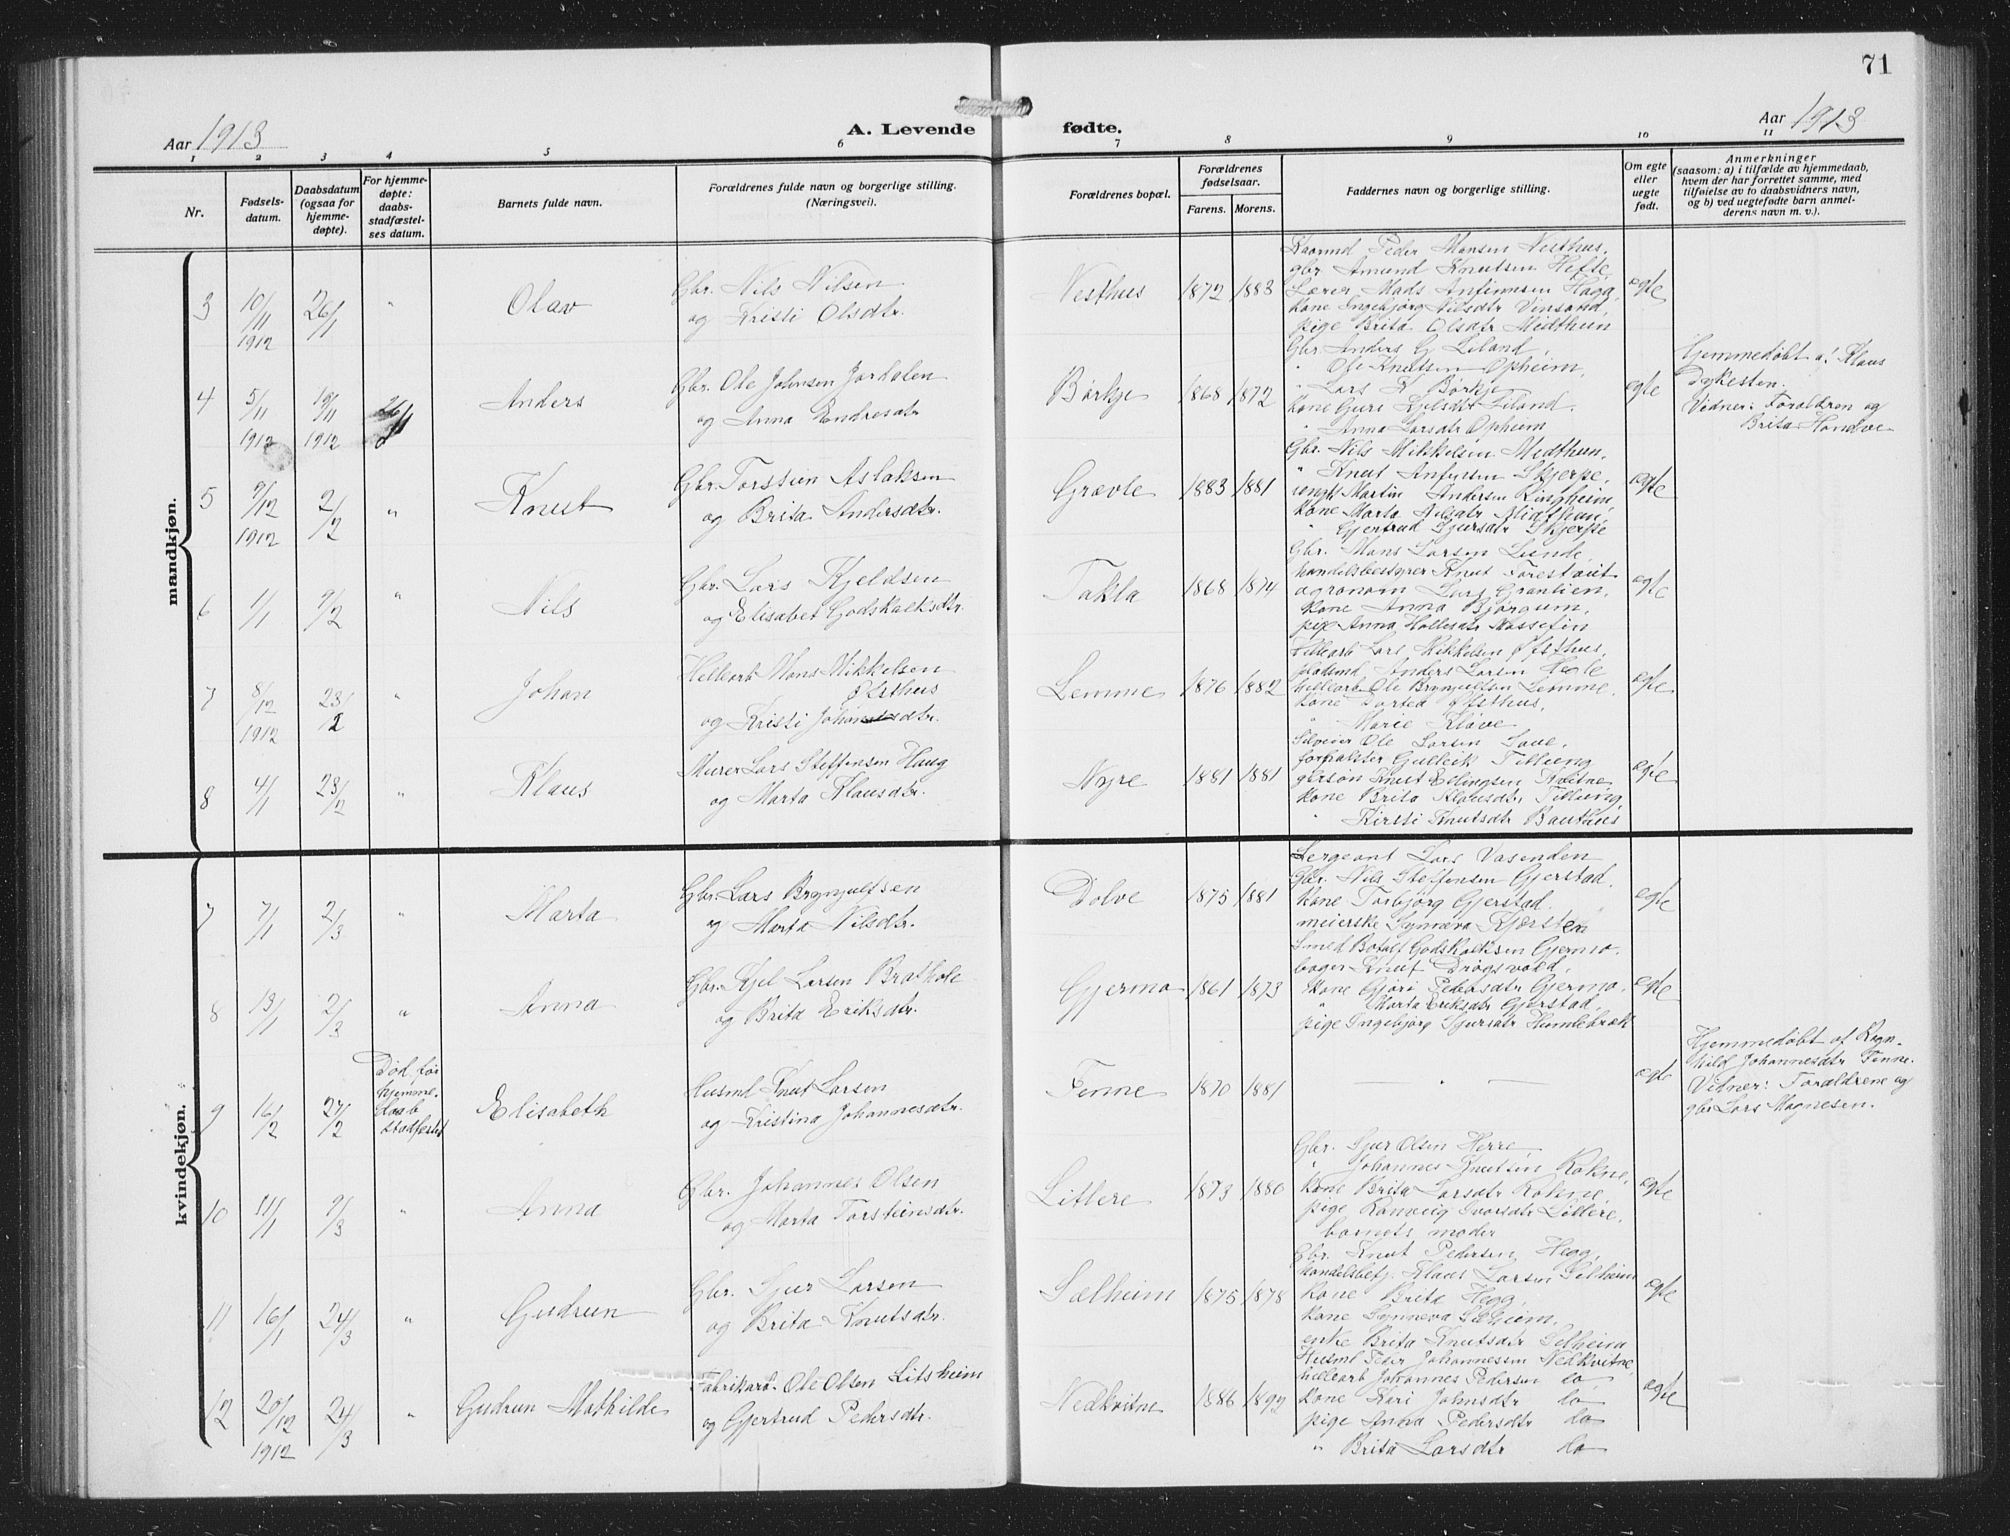 71
Aar 1913
A. Levende fødte.
Aar 1913
1 2 3 4 5 6 7 8 9 10 11
Nr.
Fødsels-
datum.
Daabsdatum
(ogsaa for
hjemme-
døpte).
For hjemme-
døpte:
daabs-
stadfæstel-
ses datum.
Barnets fulde navn.
Forældrenes fulde navn og borgerlige stilling.
(Næringsvei).
Forældrenes bopæl.
Forældrenes
fødselsaar.
Farens. Morens.
Faddernes navn og borgerlige stilling.
Om egte
eller
uegte
født.
Anmerkninger
(saasom: a) i tilfælde av hjemmedaab,
hvem der har forrettet samme, med
tilføielse av to daabsvidners navn,
og b) ved uegtefødte barn anmel-
derens navn m. v.).
mandkjøn.
3 10/11 1912 26/1 " Olav
Gbr. Nils Nilsen
og Kristi Olsdtr.
Nesthus 1872 1883
Kaarmd Peder Monsen Nesthus,
gbr Amund Knutsen Hefte,
Lærer Mads Anfinnsen Haga,
kone Ingebjørg Nilsdtr Vinsand,
pige Brita Olsdtr Midthun
egte
4 5/11 1912 19/11 1912 26/1 Anders
Gbr. Ole Johnsen Jorhalen
og Anna Endresdtr
Børkje 1868 1872
Gbr. Anders G Liland,
" Ole Knutsen Opheim,
" Lars K Børkje
kone Guro Kjelsdtr Liland.
" Anna Larsdtr Opheim
egte
Hjemmedøbt af Klaus
Dykesten.
Vidner: Forældren og
Brita Hondve
5 9/12 1912 2/2 " Knut
Gbr. Torstein Aslaksen
og Brita Andersdtr.
Grævle 1883 1881
Gbr. Nils Mikkelsen Midthun,
" Knut Anfinsen Skjerpe,
ungk Martin Andersen Ringheim
kone Marta Nilsdtr Midthun,
" Gjertrud Sjursdtr Skjerpe
egte
6 1/1 9/2 " Nils
Gbr. Lars Kjeldsen
og Elisabet Godskalksdtr.
Takla 1868 1874
Gbr. Mons Larsen Lunde,
handelsbestyrer Knut Forestøit
agronom Lars Grønlien,
kone Anna Bjørgum,
pige Anna Hallesdtr Mossefin
egte
7 8/12 1912 23/2 " Johan
Hellearb Mons Mikkelsen
Øfsthus
og Kristi Johannesdtr.
Lemme 1876 1882
Hellearb Lars Mikkelsen Øfsthus,
pladsmd Anders Larsen Hegle
hellearb Ole Brynjulfsen Lemme,
kone Dorted Øfsthus,
" Marie Kløve
egte
8 4/1 23/2 " Klaus
Murer Lars Steffensen Haug
og Marta Klausdtr.
Nyre 1881 1881
Selveier Ole Larsen Love,
forpakter Gulleik Tillung
garson Knut Ellingsen Tveitne
kone Brita Klausdtr Tillung,
" Kirsti Knutsdtr Bauthus
egte
kvindekjøn.
7 7/1 2/3 " Marta
Gbr. Lars Brynjulfsen
og Marta Nilsdtr.
Dolve 1875 1881
Sergeant Lars Vasenden
Gbr. Nils Steffensen Gjerstad,
kone Torbjørg Gjerstad
meierske Synneva Kjørsten
egte
8 13/1 2/3 " Anna
Gbr. Kjel Larsen Brathole
og Brita Eriksdtr.
Gjermo 1861 1873
Smed Botolf Godskalksen Gjermo.
bager Knut Drøgsvold,
kone Gjøri Pedersdtr Gjermo.
" Marta Eriksdtr Gjerstad,
pige Ingebjørg Sjursdtr Humlebræk
egte
9 16/2 27/2
Død før
hjemme-
daab
stadfæstet
Elisabeth
Husmd Knut Larsen
og Kristina Johannesdtr.
Finne 1870 1881
— " —
egte
Hjemmedøbt af Ragn-
hild Johannesdtr Finne.
Vidner: Forældrene og
gbr Lars Magnesen.
10 11/1 9/3 " Anna
Gbr. Johannes Olsen
og Marta Torsteinsdtr.
Litlere 1873 1880
Gbr. Sjur Olsen Herre,
" Johannes Knutsen Rokne,
kone Brita Larsdtr Rokne,
pige Ranveig Ivarsdtr Litlere,
barnets moder
egte
11 16/1 24/3 " Gudrun
Gbr. Sjur Larsen
og Brita Knutsdtr.
Sælheim 1875 1878
Gbr. Knut Pedersen Hegg,
handelsbetj. Klaus Larsen Selheim
kone Brita Hegg,
kone Synneva Sælheim,
enke Brita Knutsdtr Selheim
egte
12 20/12 1912 24/3 " Gudrun Mathilde
Fabrikarb. Ole Olsen Litsheim
og Gjertrud Pedersdtr.
Nedkvitne 1886 1892
Husmd Peder Johannessen Nedkvitne,
hellearb Johannes Pedersen do
kone Kari Johnsdtr do
pige Anna Pedersdtr do
" Brita Larsdtr do
egte